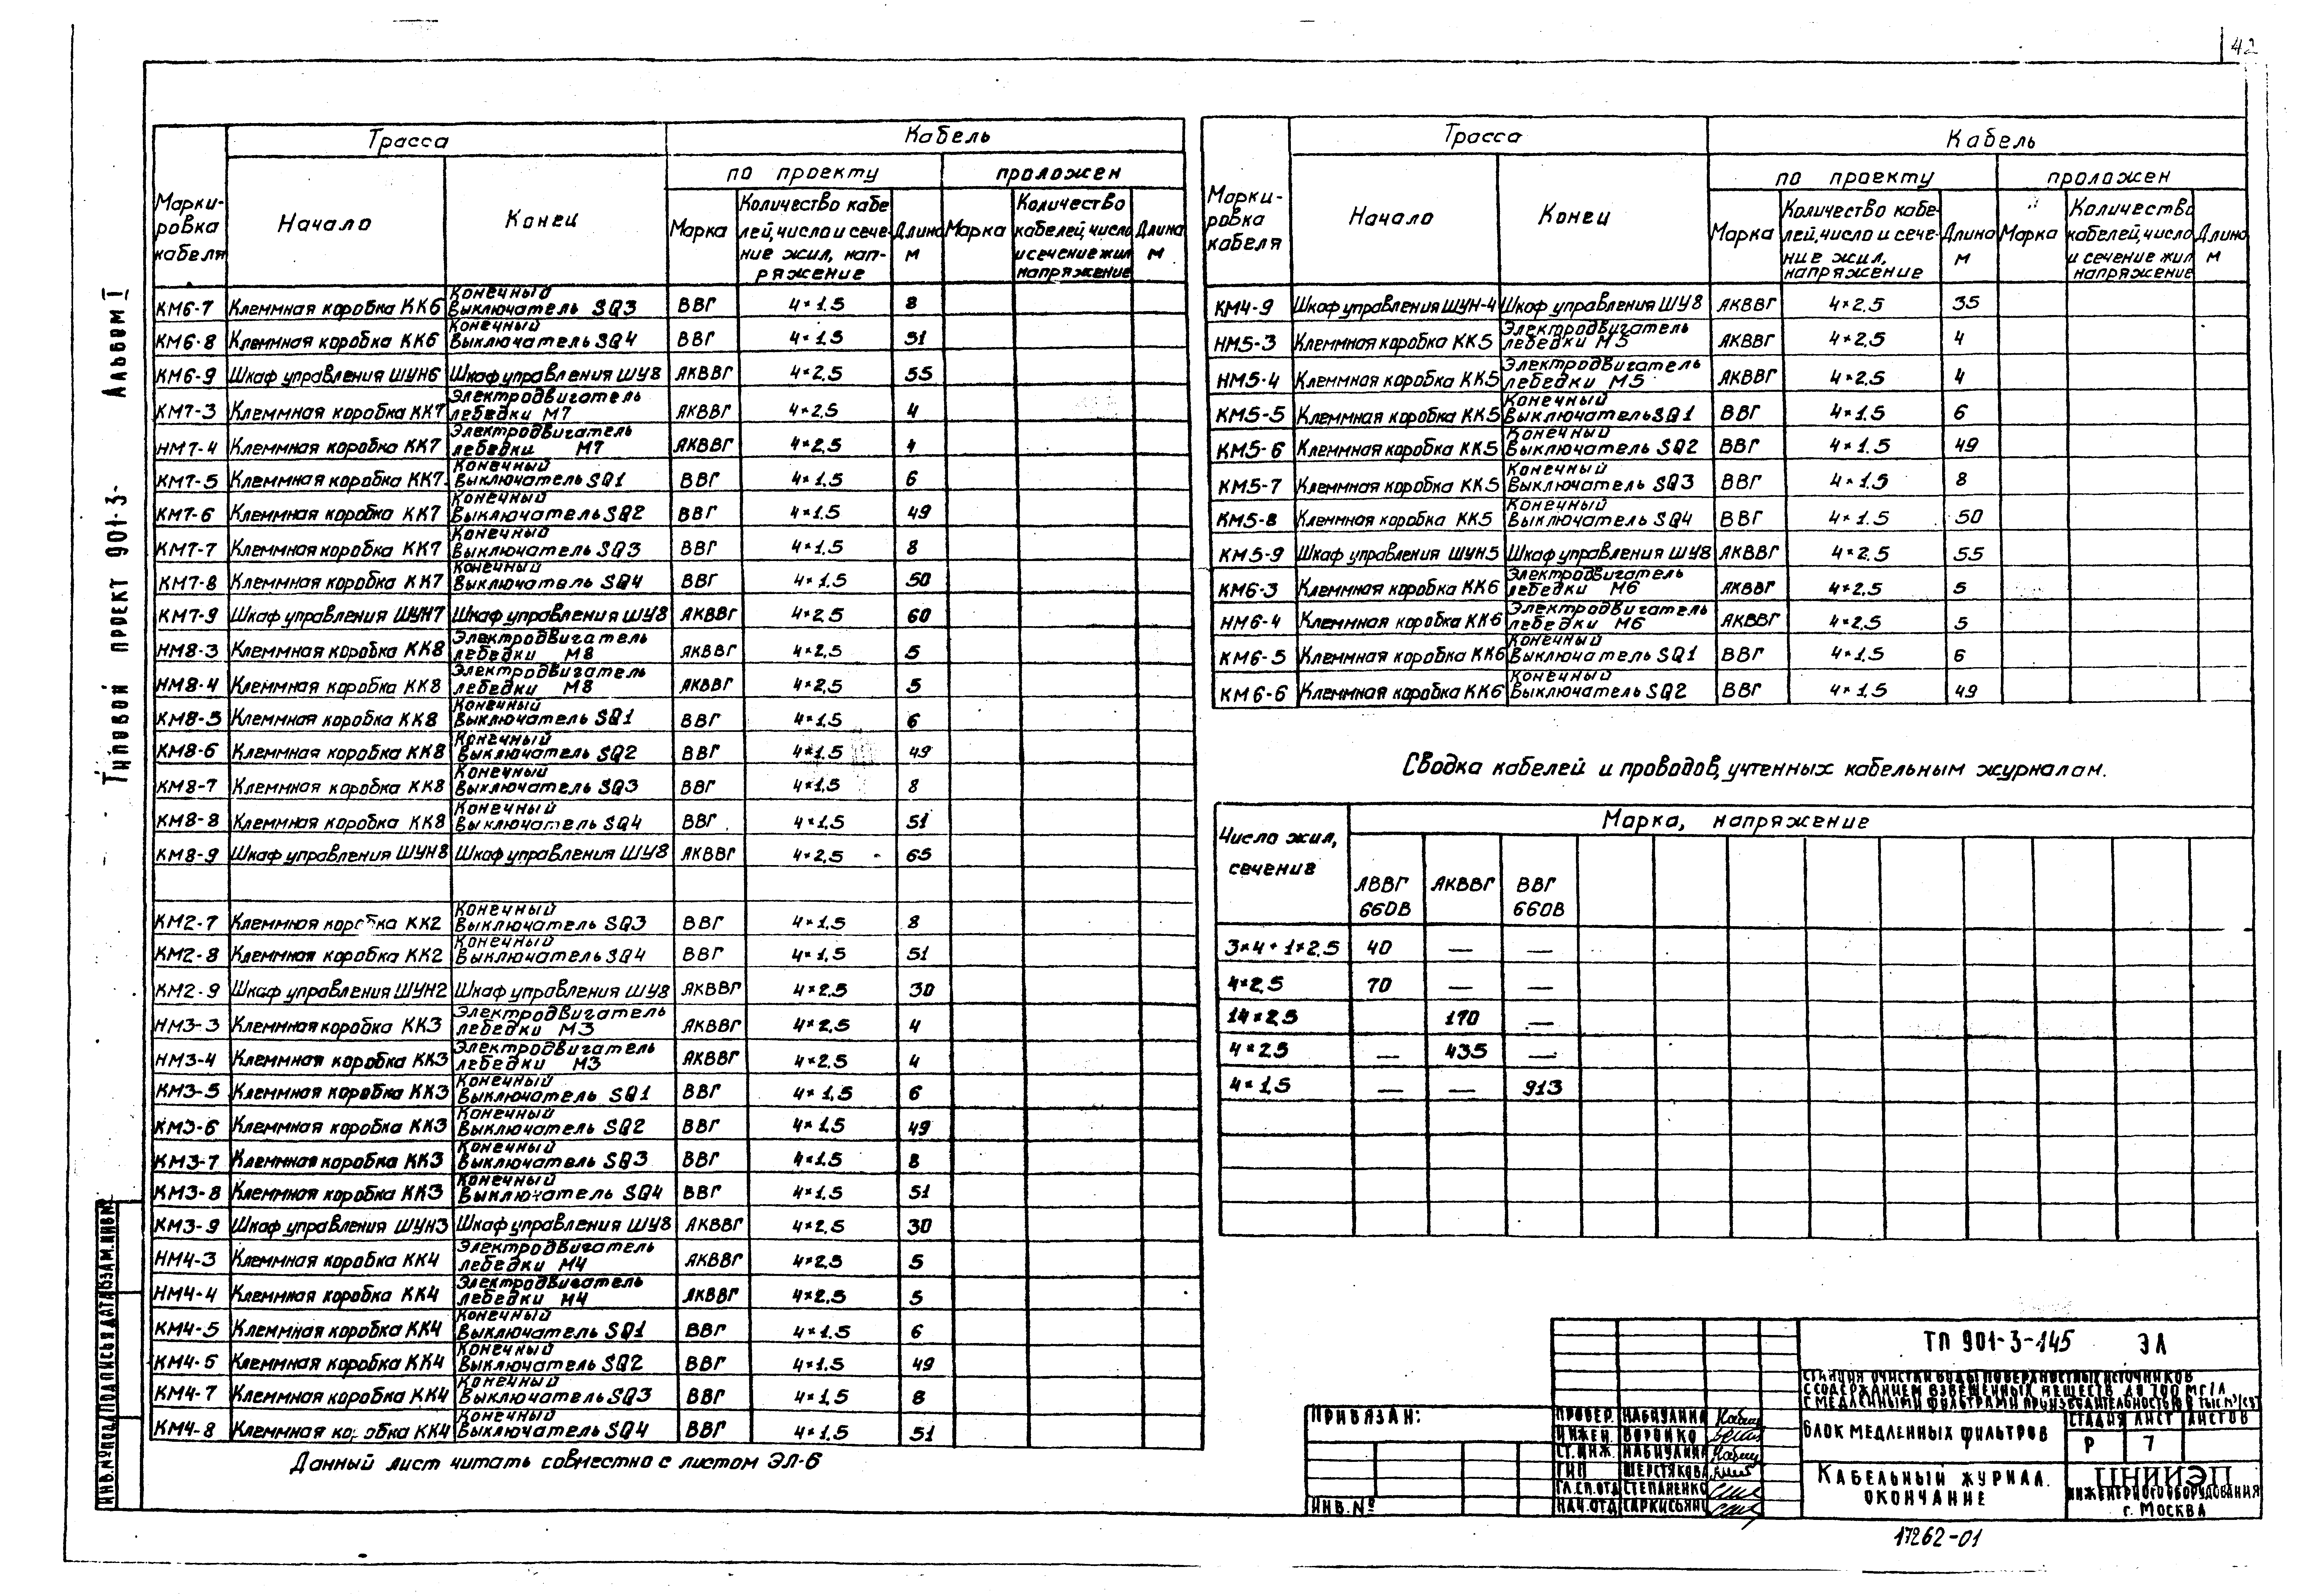 42
Типовой проект 901-3- Альбом I
Марки-
ровка
кабеля
Трасса
Кабель
Начало
Конец
по проекту
проложен
Марка
Количество кабе
лей, число и сече-
ние жил, нап-
ряжение
Длина
м
Марка
Количество
кабелей, число
и сечение жил
напряжение
Длина
м
КМ6-7 Клеммная коробка КК6 Конечный выключатель SQ3 ВВГ 4×1.5 8
КМ6-8 Клеммная коробка КК6 Конечный выключатель SQ4 ВВГ 4×1.5 51
КМ6-9 Шкаф управления ШУН6 Шкаф управления ШУ8 АКВВГ 4×2,5 55
КМ7-3 Клеммная коробка КК7 Электродвигатель лебедки М7 АКВВГ 4×2,5 4
НМ7-4 Клеммная коробка КК7 Электродвигатель лебедки М7 АКВВГ 4×2,5 4
КМ7-5 Клеммная коробка КК7 Конечный выключатель SQ1 ВВГ 4×1,5 6
КМ7-6 Клеммная коробка КК7 Конечный выключатель SQ2 ВВГ 4×1.5 49
КМ7-7 Клеммная коробка КК7 Конечный выключатель SQ3 ВВГ 4×1.5 8
КМ7-8 Клеммная коробка КК7 Конечный выключатель SQ4 ВВГ 4×1.5 50
КМ7-9 Шкаф управления ШУН7 Шкаф управления ШУ8 АКВВГ 4×2.5 60
НМ8-3 Клеммная коробка КК8 Электродвигатель лебедки М8 АКВВГ 4×2,5 5
НМ8-4 Клеммная коробка КК8 Электродвигатель лебедки М8 АКВВГ 4×2,5 5
КМ8-5 Клеммная коробка КК8 Конечный выключатель SQ1 ВВГ 4×1,5 6
КМ8-6 Клеммная коробка КК8 Конечный выключатель SQ2 ВВГ 4×1.5 49
КМ8-7 Клеммная коробка КК8 Конечный выключатель SQ3 ВВГ 4×1,5 8
КМ8-8 Клеммная коробка КК8 Конечный выключатель SQ4 ВВГ 4×1,5 51
КМ8-9 Шкаф управления ШУН8 Шкаф управления ШУ8 АКВВГ 4×2,5 65
КМ2-7 Клеммная коробка КК2 Конечный выключатель SQ3 ВВГ 4×1,5 8
КМ2-8 Клеммная коробка КК2 Конечный выключатель SQ4 ВВГ 4×1,5 51
КМ2-9 Шкаф управления ШУН2 Шкаф управления ШУ8 АКВВГ 4×2.5 30
НМ3-3 Клеммная коробка КК3 Электродвигатель лебедки М3 АКВВГ 4×2,5 4
НМ3-4 Клеммная коробка КК3 Электродвигатель лебедки М3 АКВВГ 4×2.5 4
КМ3-5 Клеммная коробка КК3 Конечный выключатель SQ1 ВВГ 4×1,5 6
КМ3-6 Клеммная коробка КК3 Конечный выключатель SQ2 ВВГ 4×1.5 49
КМ3-7 Клеммная коробка КК3 Конечный выключатель SQ3 ВВГ 4×1.5 8
КМ3-8 Клеммная коробка КК3 Конечный выключатель SQ4 ВВГ 4×1,5 51
КМ3-9 Шкаф управления ШУН3 Шкаф управления ШУ8 АКВВГ 4×2,5 30
НМ4-3 Клеммная коробка КК4 Электродвигатель лебедки М4 АКВВГ 4×2,5 5
НМ4-4 Клеммная коробка КК4 Электродвигатель лебедки М4 АКВВГ 4×2,5 5
КМ4-5 Клеммная коробка КК4 Конечный выключатель SQ1 ВВГ 4×1.5 6
КМ4-6 Клеммная коробка КК4 Конечный выключатель SQ2 ВВГ 4×1.5 49
КМ4-7 Клеммная коробка КК4 Конечный выключатель SQ3 ВВГ 4×1,5 8
КМ4-8 Клеммная коробка КК4 Конечный выключатель SQ4 ВВГ 4×1,5 51
Данный лист читать совместно с листом ЭЛ-6
Марки-
ровка
кабеля
Трасса
Кабель
Начало
Конец
по проекту
проложен
Марка
Количество кабе-
лей, число и сече-
ние жил,
напряжение
Длина
м
Марка
Количество
кабелей, число
и сечение жил
напряжение
Длина
м
КМ4-9 Шкаф управления ШУН-4 Шкаф управления ШУ8 АКВВГ 4×2,5 35
НМ5-3 Клеммная коробка КК5 Электродвигатель лебедки М5 АКВВГ 4×2.5 4
НМ5-4 Клеммная коробка КК5 Электродвигатель лебедки М5 АКВВГ 4×2,5 4
КМ5-5 Клеммная коробка КК5 Конечный выключатель SQ1 ВВГ 4×1.5 6
КМ5-6 Клеммная коробка КК5 Конечный выключатель SQ2 ВВГ 4×1.5 49
КМ5-7 Клеммная коробка КК5 Конечный выключатель SQ3 ВВГ 4×1.5 8
КМ5-8 Клеммная коробка КК5 Конечный выключатель SQ4 ВВГ 4×1.5 50
КМ5-9 Шкаф управления ШУН5 Шкаф управления ШУ8 АКВВГ 4×2.5 55
КМ6-3 Клеммная коробка КК6 Электродвигатель лебедки М6 АКВВГ 4×2.5 5
НМ6-4 Клеммная коробка КК6 Электродвигатель лебедки М6 АКВВГ 4×2,5 5
КМ6-5 Клеммная коробка КК6 Конечный выключатель SQ1 ВВГ 4×1,5 6
КМ6-6 Клеммная коробка КК6 Конечный выключатель SQ2 ВВГ 4×1,5 49
Сводка кабелей и проводов, учтенных кабельным журналам.
Число жил,
сечения
Марка, напряжение
АВВГ
660В
АКВВГ
ВВГ
660В
3×4+1×2.5 40 — —
4×2,5 70 — —
14×2,5 170 —
4×2.5 — 435 —
4×1,5 — — 913
ТП 901-3-145 ЭЛ
Станция очистки воды поверхностных источников
с содержанием взвешенных веществ до 700 мг/л
с медленными фильтрами производительностью
Блок медленных фильтров
Стадия Лист Листов
Р 7
Кабельный журнал.
Окончание
ЦНИИЭП
инженерного оборудования
г. Москва
Привязан:
Инв. №
Провер. Набиулина
Инжен. Воронко
Ст. инж. Набиулина
ГИП Шерстякова
Гл. сп. отд Степаненко
Нач. отд Саркисьянц
Инв. № подл Подпись и дата Взам. инв №
17262-01